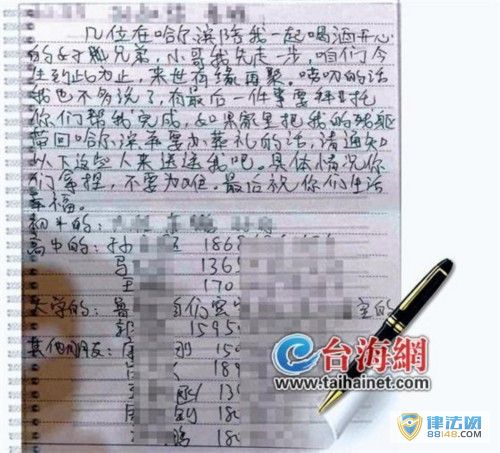 几位在哈尔滨陪我一起喝酒开心
的好朋兄弟，小哥我先走一步，咱们今
生到此为止，来世有缘再聚。唠叨的话
我也不多说了，有最后一件事要拜托
你们帮我完成，如果家里把我的残躯
带回哈尔滨要办葬礼的话，请通知
以下这些人来送送我吧。具体情况你
们拿捏，不要为难。最后祝你们生活
幸福。
初中的：
高中的：孙 186
马 136
王 170
大学的：鲁 咱们 室的
郭 1595
其他朋友： 刚 15
189
刚 13
180
鹏 18
台海網
www.taihainet.com
律法网
88148.com